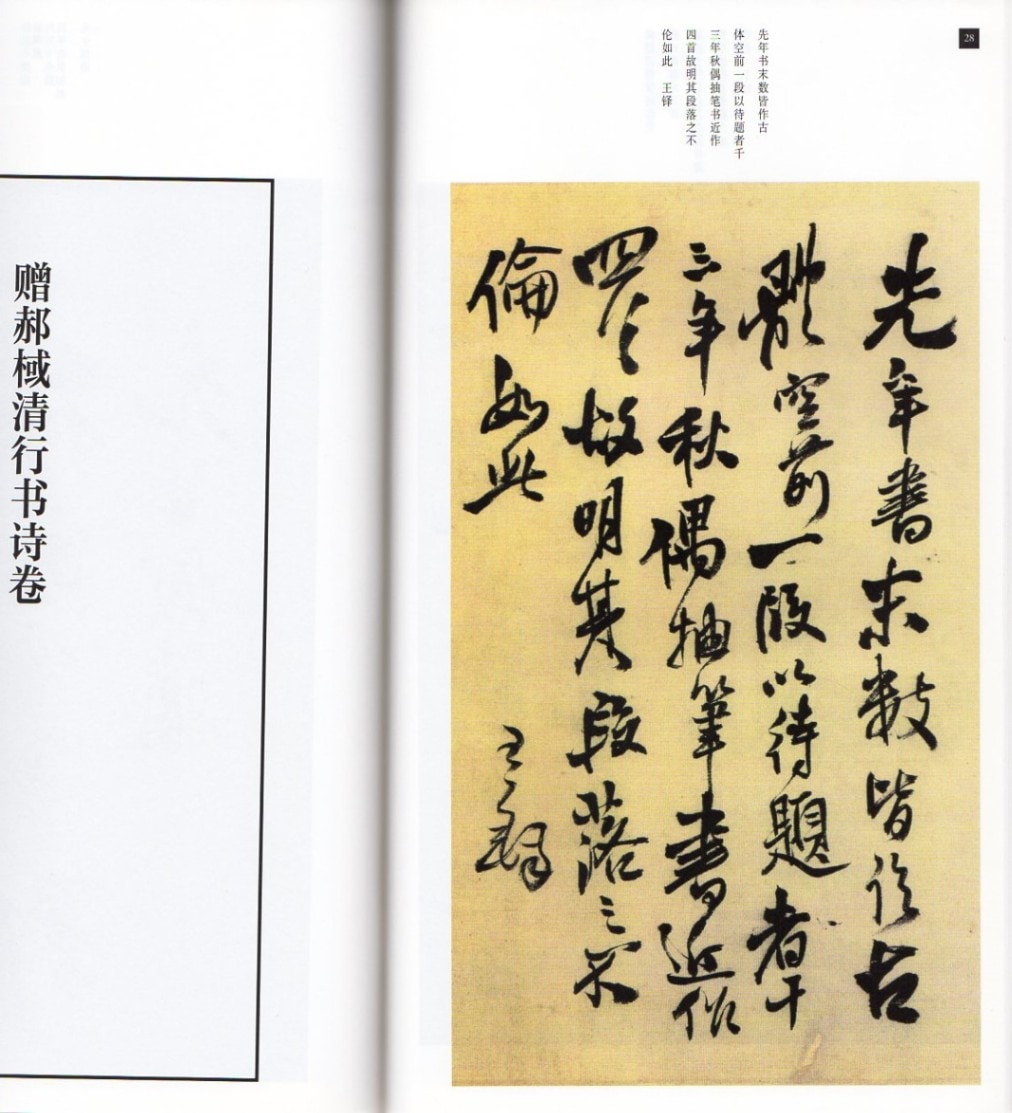 28
先年书末数皆作古
体空前一段以待题者千
三年秋偶抽笔书近作
四首故明其段落之不
伦如此　王铎
先年書末數皆作古
體空前一段以待題者千
三年秋偶抽筆書近作
四首故明其段落之不
倫如此　王鐸
赠郝棫清行书诗卷